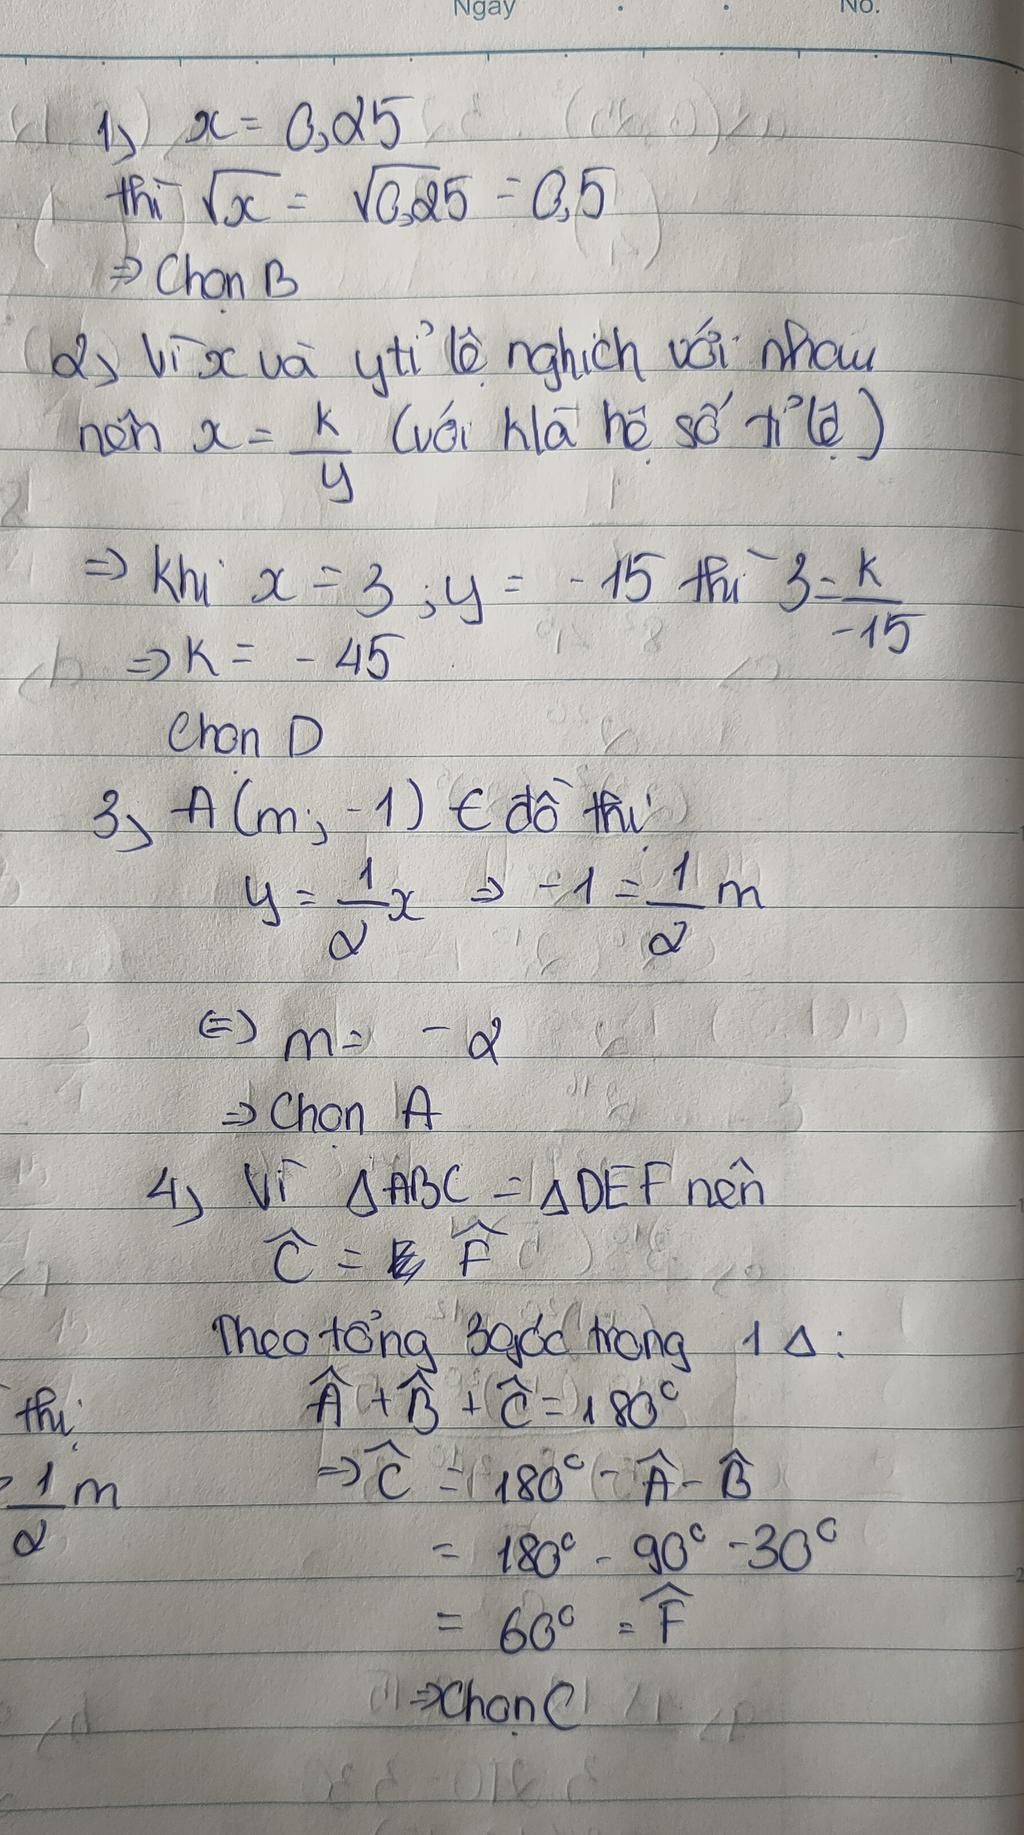 Ngày
No.
1, x = 0,25
thì √x = √0,25 = 0,5
⇒ Chọn B
2, Vì x và y tỉ lệ nghịch với nhau
nên x = k/y (với k là hệ số tỉ lệ)
⇒ khi x = 3 ; y = -15 thì 3 = k/-15
⇒ k = - 45
Chọn D
3, A(m; -1) ∈ đồ thị
y = 1/2 x ⇒ -1 = 1/2 m
⇔ m = -2
⇒ Chọn A
4, Vì ΔABC = ΔDEF nên
Ĉ = F̂
Theo tổng 3 góc trong 1 Δ:
Â + B̂ + Ĉ = 180°
⇒ Ĉ = 180° - Â - B̂
= 180° - 90° - 30°
= 60° = F̂
⇒ Chọn C
thị
1/2 m